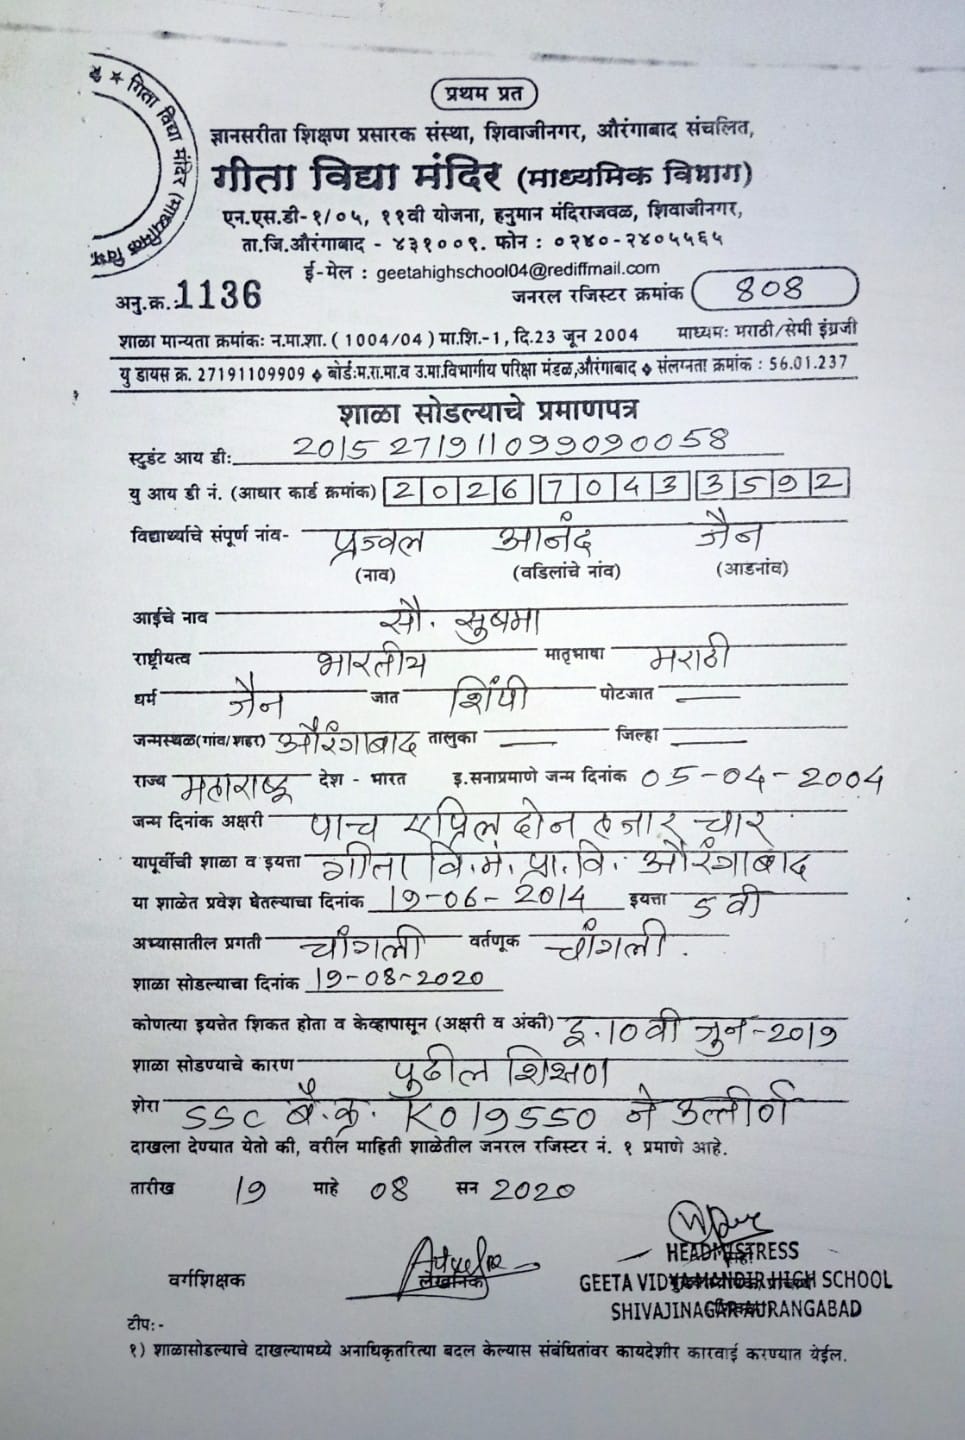 ★ गिता विद्या मंदिर (माध्यमिक
प्रथम प्रत
ज्ञानसरीता शिक्षण प्रसारक संस्था, शिवाजीनगर, औरंगाबाद संचलित,
गीता विद्या मंदिर (माध्यमिक विभाग)
एन.एस.डी-१/०५, ११वी योजना, हनुमान मंदिराजवळ, शिवाजीनगर,
ता.जि.औरंगाबाद - ४३१००९. फोन : ०२४०-२४०५५६५
ई-मेल : geetahighschool04@rediffmail.com
अनु.क्र.:1136 जनरल रजिस्टर क्रमांक 808
शाळा मान्यता क्रमांकः न.मा.शा. ( 1004/04 ) मा.शि.-1, दि.23 जून 2004 माध्यमः मराठी/सेमी इंग्रजी
यु डायस क्र. 27191109909 ◆ बोर्डःम.रा.मा.व उ.मा.विभागीय परिक्षा मंडळ,औरंगाबाद ◆ संलग्नता क्रमांक : 56.01.237
शाळा सोडल्याचे प्रमाणपत्र
स्टुडंट आय डी: 2015271911099090058
यु आय डी नं. (आधार कार्ड क्रमांक) 2026 7043 3592
विद्यार्थ्याचे संपूर्ण नांव- प्रज्वल आनंद जैन
(नाव) (वडिलांचे नांव) (आडनांव)
आईचे नाव सौ. सुषमा
राष्ट्रीयत्व भारतीय मातृभाषा मराठी
धर्म जैन जात शिंपी पोटजात —
जन्मस्थळ(गांव/शहर) औरंगाबाद तालुका — जिल्हा —
राज्य महाराष्ट्र देश - भारत इ.सनाप्रमाणे जन्म दिनांक 05-04-2004
जन्म दिनांक अक्षरी पाच एप्रिल दोन हजार चार
यापूर्वीची शाळा व इयत्ता गीता वि.मं. प्रा.वि. औरंगाबाद
या शाळेत प्रवेश घेतल्याचा दिनांक 19-06-2014 इयत्ता 5 वी
अभ्यासातील प्रगती चांगली वर्तणूक चांगली.
शाळा सोडल्याचा दिनांक 19-08-2020
कोणत्या इयत्तेत शिकत होता व केव्हापासून (अक्षरी व अंकी) इ.10वी जुन-2019
शाळा सोडण्याचे कारण पुढील शिक्षण
शेरा SSC बै.क्र. K019550 ने उत्तीर्ण
दाखला देण्यात येतो की, वरील माहिती शाळेतील जनरल रजिस्टर नं. १ प्रमाणे आहे.
तारीख 19 माहे 08 सन 2020
वर्गशिक्षक लेखनिक HEADMISTRESS
GEETA VIDYA MANDIR HIGH SCHOOL
SHIVAJINAGAR AURANGABAD
टीप:-
१) शाळासोडल्याचे दाखल्यामध्ये अनाधिकृतरित्या बदल केल्यास संबंधितांवर कायदेशीर कारवाई करण्यात येईल.